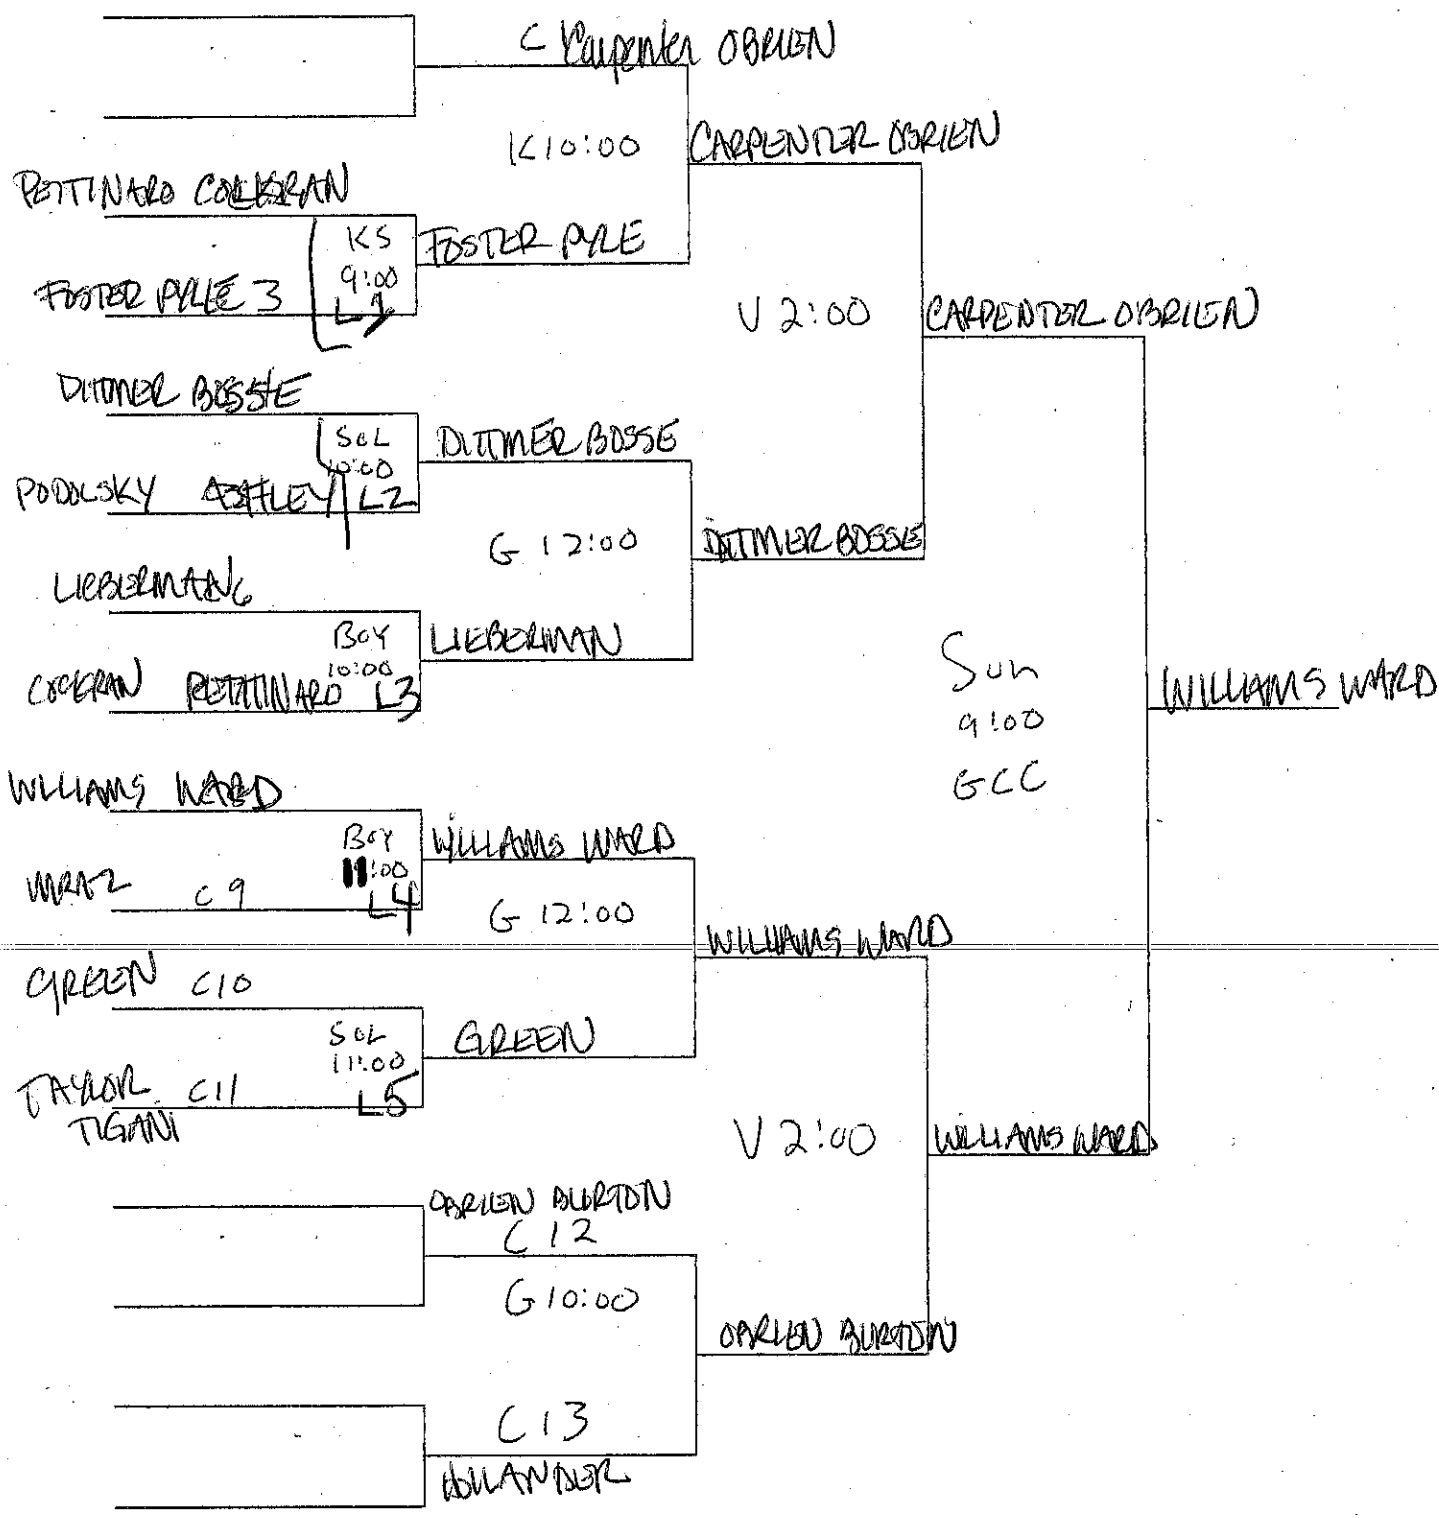 C Carpenter OBRIEN
K10:00
CARPENTER OBRIEN
PETTINARO
KS
9:00
L1
FOSTER PYLE
FOSTER PYLE 3
V 2:00
CARPENTER OBRIEN
DITTMER BOSSE
SOL
10:00
DITTMER BOSSE
PODOLSKY ASHLEY L2
G 12:00
DITTMER BOSSE
LIEBERMAN
BOY
10:00
LIEBERMAN
COCKRAN PETTINARO L3
Sun
9:00
GCC
WILLIAMS WARD
WILLIAMS WARD
BOY
11:00
WILLIAMS WARD
MRAZ C9
L4
G 12:00
WILLIAMS WARD
GREEN C10
SOL
11:00
GREEN
TAYLOR C11
L5
TIGANI
V 2:00
WILLIAMS WARD
OBRIEN BURTON
C 12
G 10:00
OBRIEN BURTON
C 13
HOLLANDER